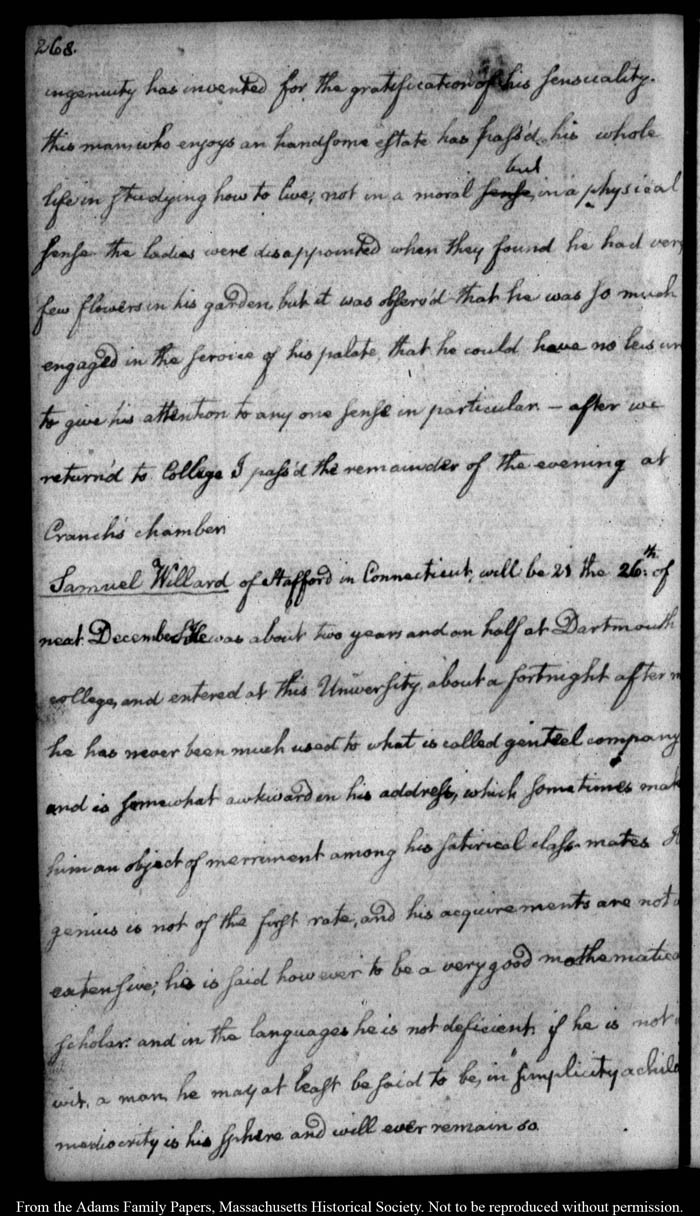 268.
ingenuity has invented for the gratification of his sensuality.
this man, who enjoys an handsome estate has pass'd, his whole
but
life in studying how to live; not in a moral sense, in a physical
sense. the ladies were disappointed when they found he had very
few flowers in his garden, but it was observ'd that he was so much
engaged in the service of his palate, that he could have no leisure
to give his attention to any one sense in particular. — after we
return'd to College I pass'd the remainder of the evening at
Cranch's chamber
Samuel Willard of Stafford in Connecticut, will be 21 the 26th: of
next December. He was about two years and an half at Dartmouth
college, and entered at this University, about a fortnight after
he has never been much used to what is called genteel company
and is somewhat awkward in his address, which sometimes mak
him an object of merriment among his satirical class-mates.
genius is not of the first rate, and his acquirements are not
extensive; he is said however to be a very good mathematica
scholar: and in the languages he is not deficient. if he is not
wit, a man, he may at least be said to be, in simplicity a child
mediocrity is his sphere and will ever remain so.
From the Adams Family Papers, Massachusetts Historical Society. Not to be reproduced without permission.